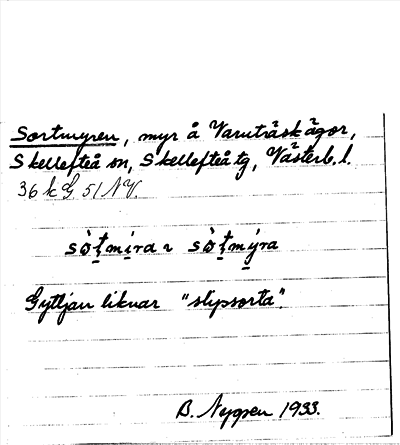 Sortmyren, myr å Varuträskägor,
Skellefteå sn, Skellefteå tg, Västerb. l.
36 k G. 51 NV.
sò̀ṭmira ~ sò̀ṭmýra
Gyttjan liknar "slipsorta".
B. Nygren 1933.